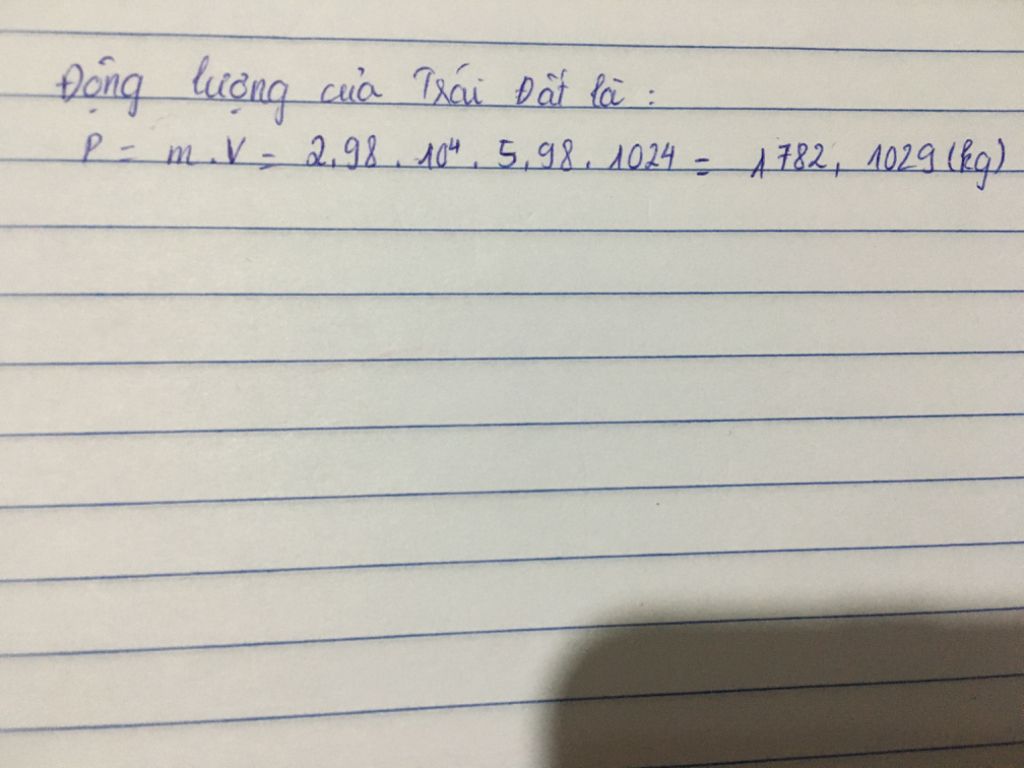 Động lượng của Trái Đất là :
P = m . V = 2,98 . 10⁴ . 5,98 . 1024 = 1782, 1029 (kg)